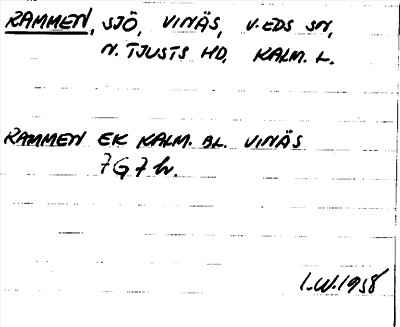 RAMMEN, SJÖ, VINÄS, V. EDS SN,
N. TJUSTS HD, KALM. L.
RAMMEN EK KALM. BL. VINÄS
7G7h.
I.W. 1958